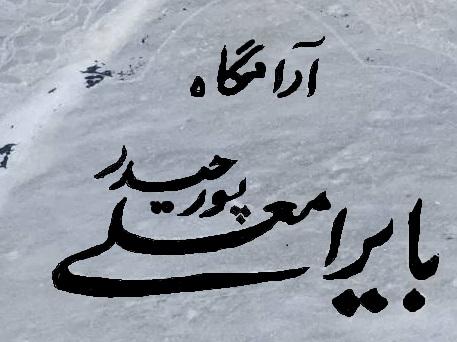 آرامگاه
بایرامعلی
پورحیدر